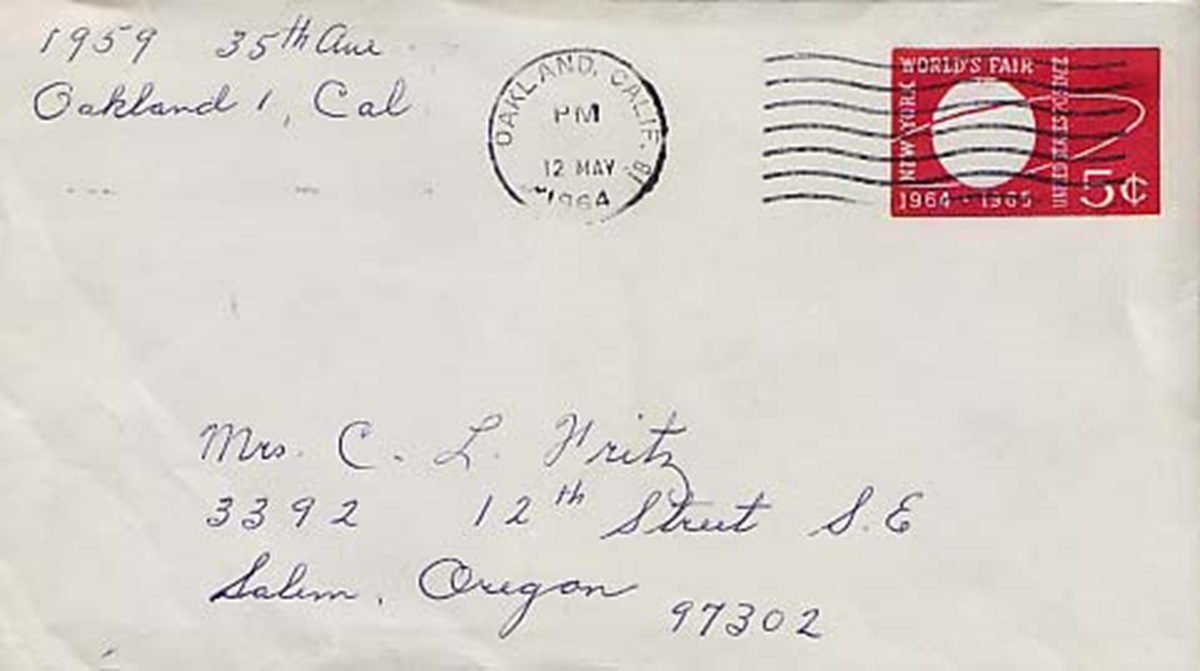 1959 35th Ave
Oakland 1, Cal
OAKLAND, CALIF.
PM
12 MAY
1964
WORLD'S FAIR
NEW YORK
UNITED STATES POSTAGE
1964 - 1965
5¢
Mrs. C. L. Fritz
3392 12th Street S.E
Salem, Oregon
97302